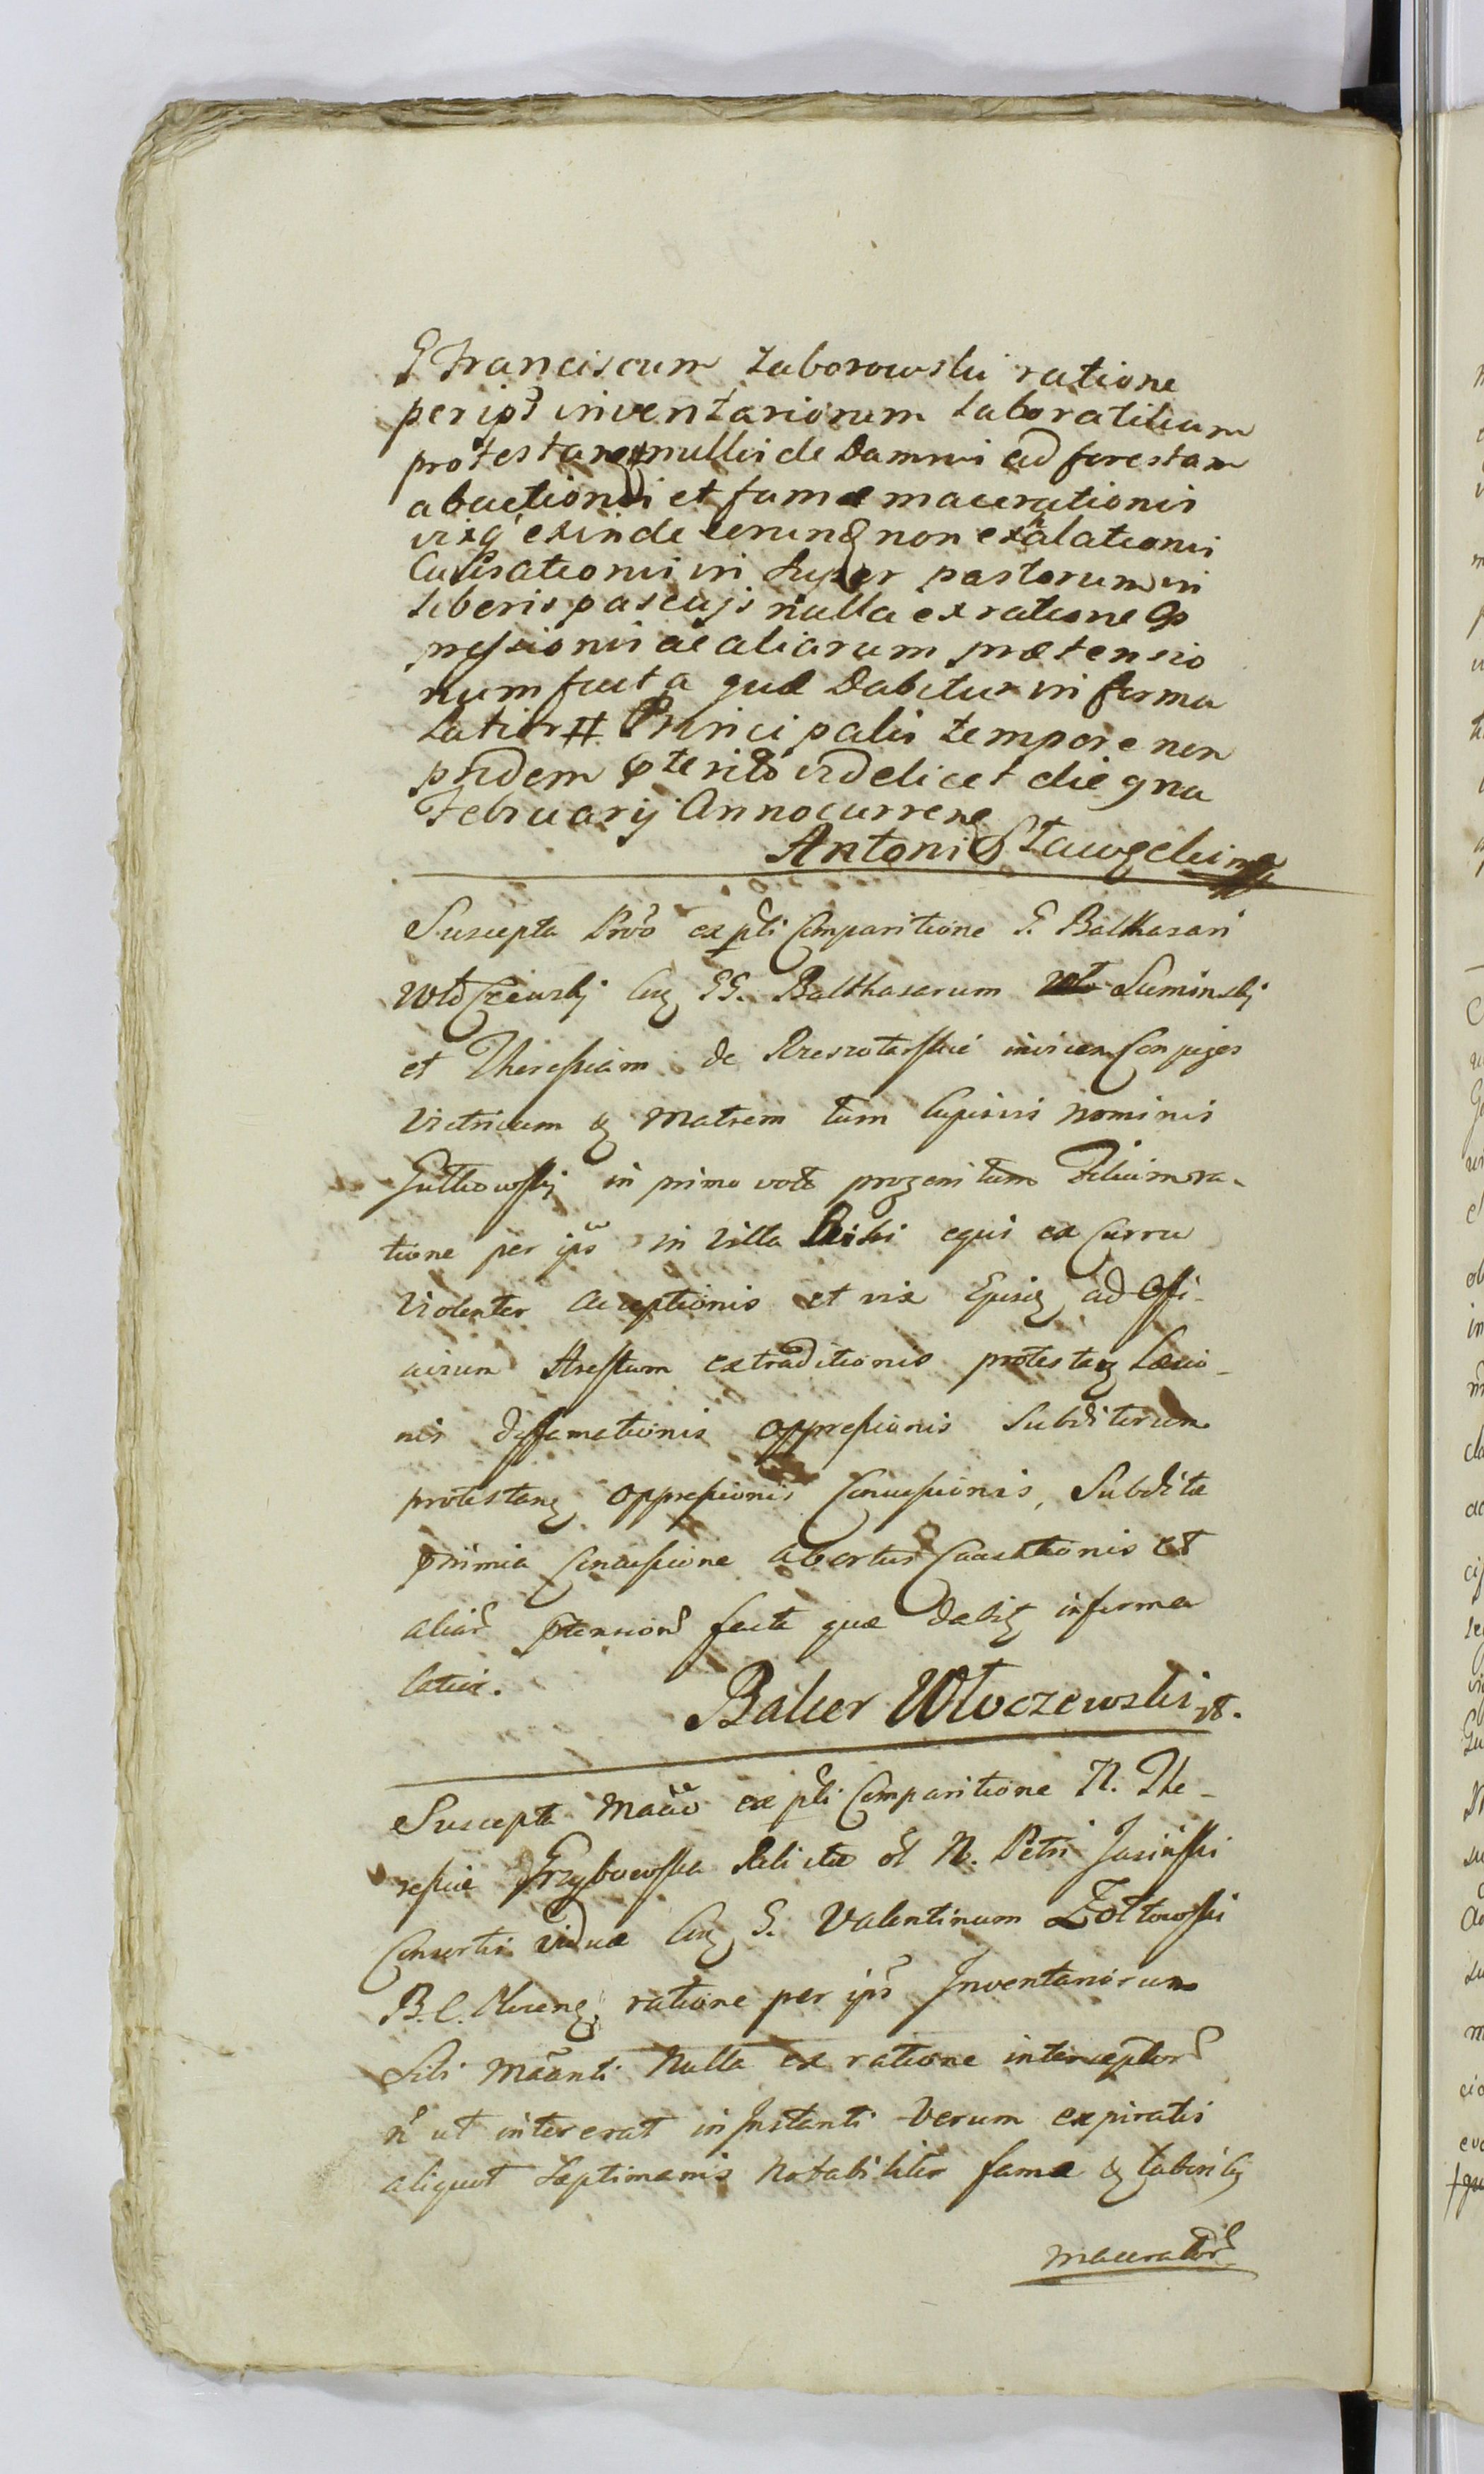 G Franciscum Zaborowski ratione
per ips inventariorum laboratilium
protestan nulli de Damni ad forestam
abactionis et famæ macerationis
vixq exinde eorund non exhalationis
in super pastorum in
liberis pascujs nulla ex ratione op
pressionis ac aliarum prætensio
num facta quæ Dabitur in forma
latiori Principalis tempore non
pridem pterito videlicet die 9na
February Anno currene
Antoni Stawecki mp
Suscepta Prvo ex pti Comparitione G. Balthasari
Wło Czewskj Cu GG. Balthasarum Suminskj
et Theressiam de Rzeszotarskie invicem Conjuges
Vitricum & Matrem tum Cujusvis nominis
Gutkowskj in primo voto progenitum Filium ra-
tione per ips in Villa equi ex Curru
Violenter acceptionis et vix Ejusq ad Offi-
cium Arestum extraditionis protestaq Læsio-
nis diffamationis oppressionis Subditorum
protestanq oppressionis Concussionis, Subditæ
nimia Concussione abortus Causationis et
aliar ptension facta quæ Dabiq in forma
latiori.
Balcer Włoczewski
Suscepta ex pti Comparitione N. The-
ressiæ Grzybowska Relictæ ol N. Petri Jasiński
Consortis viduæ Cu G. Valentinum Żółtowski
B. C. ratione per ips Inventariorum
Sibi nulla ex ratione interceptor
n ut intererat in Instanti Verum expiratis
aliquot Septimanis Notabiliter fame &
macerator